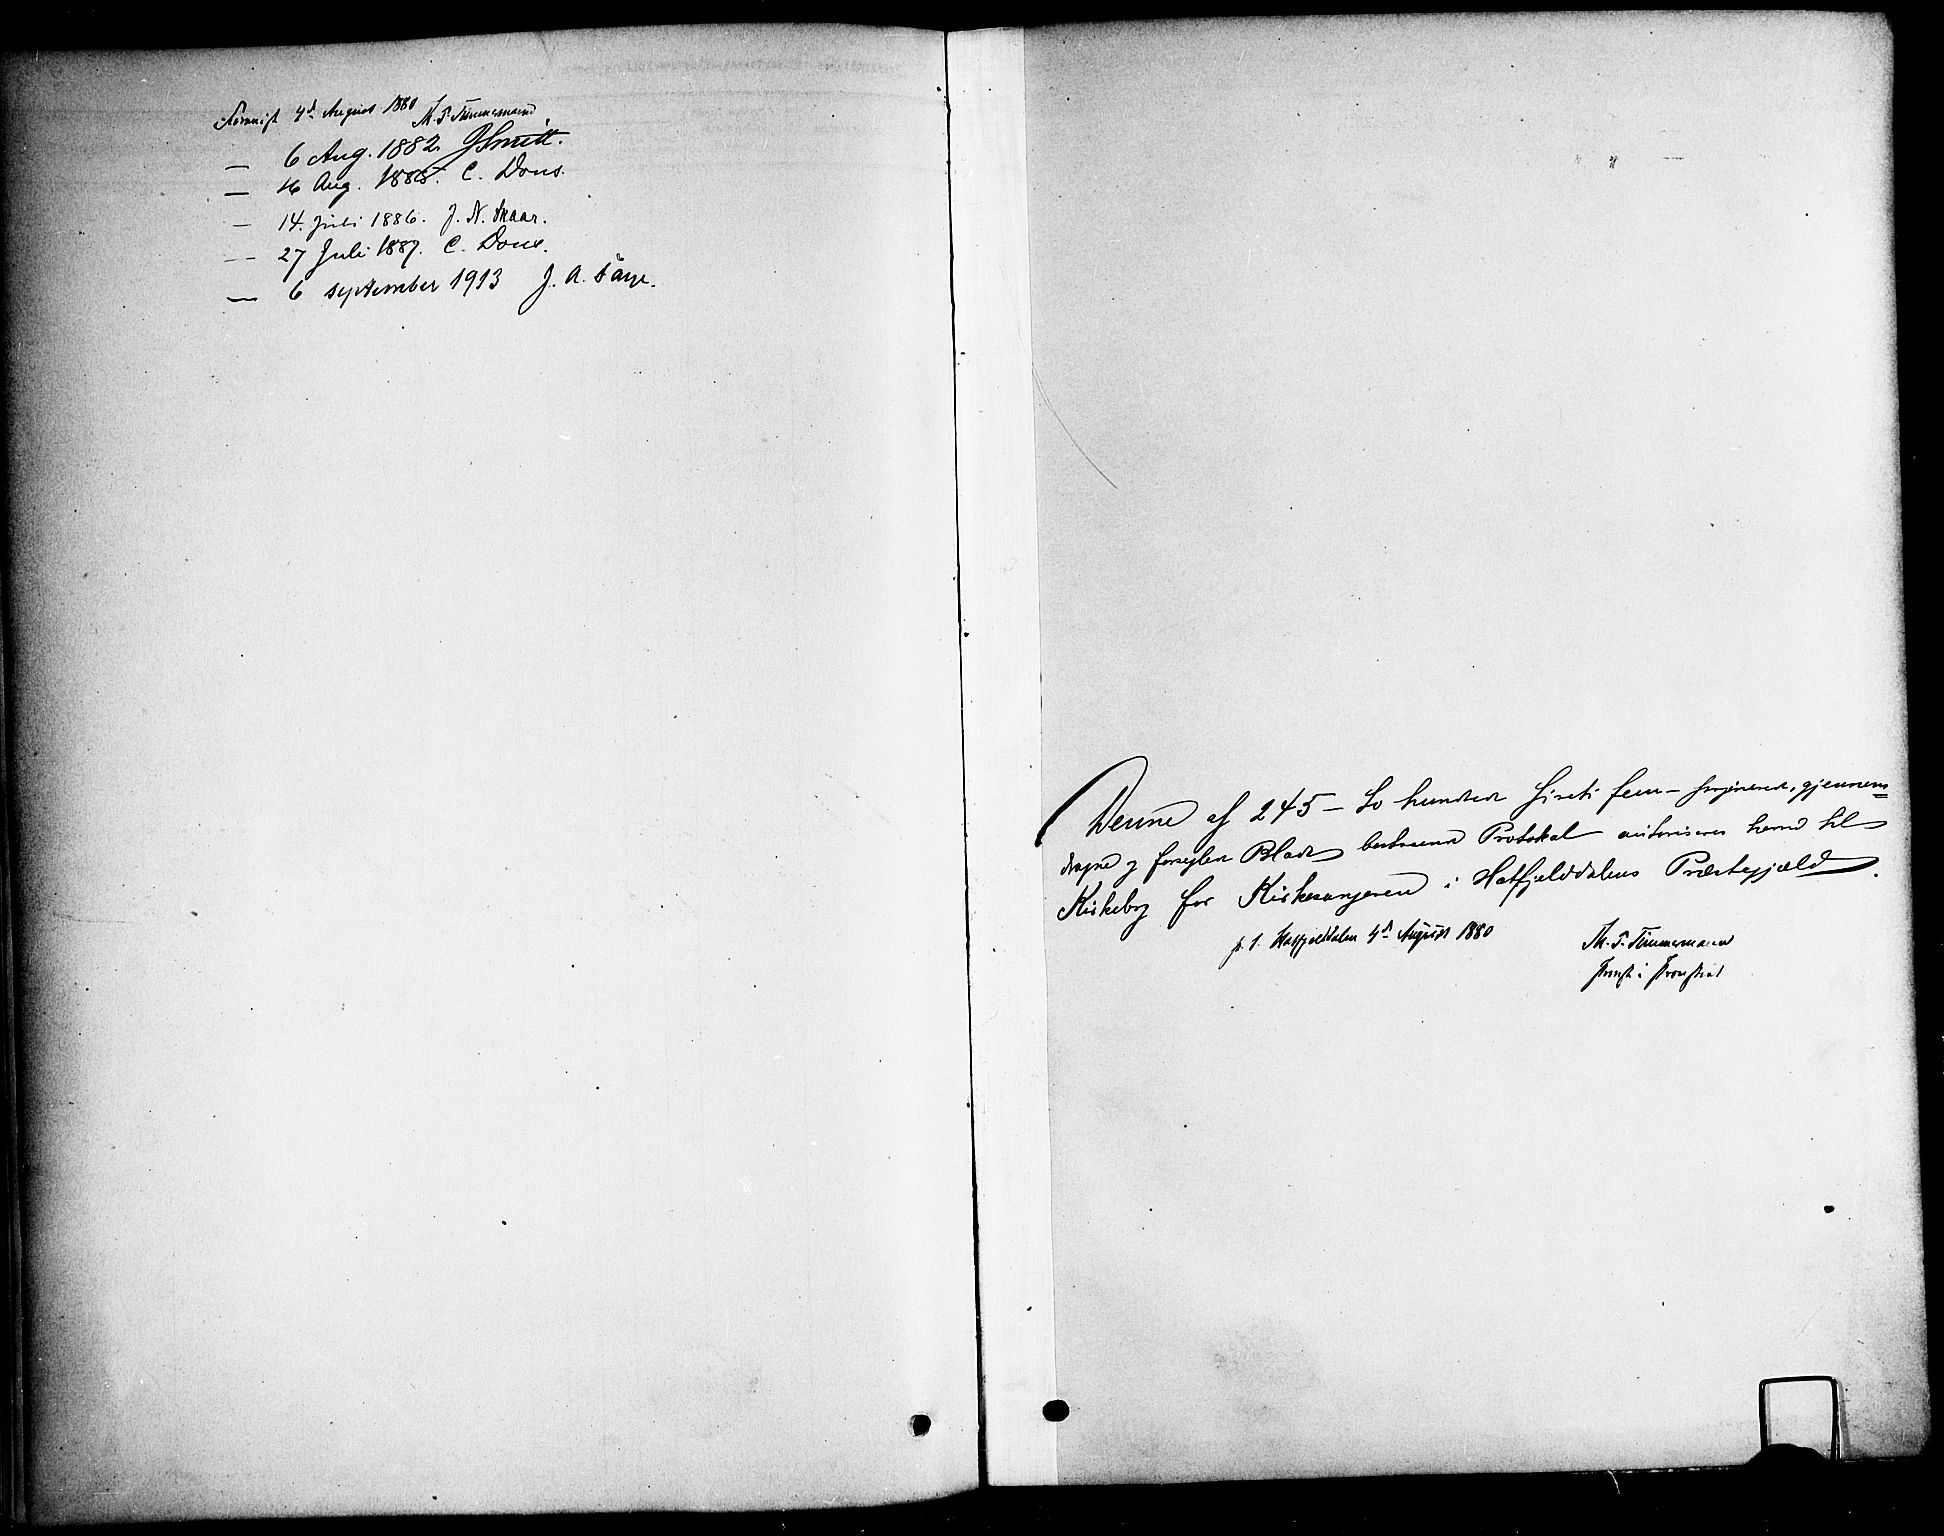 4d August 1880 M. T. Timmermann
— 6 Aug. 1882. J Smitt.
— 16 Aug. 1885. C. Dons.
— 14. Juli 1886. J. N. Skaar.
— 27 Juli 1887. C. Dons.
— 6 september 1913 J. A.
Denne af 245 – To hundrede fireti fem – paginerede, gjennem=
dragne og forseglede Blade bestaaende Protokol autoriseres herved til
Kirkebog for Kirkesangeren i Hatfjelddalens Præstegjæld.
p. t. Hatfjelddalen 4d August 1880
M. T. Timmermann
Provst i